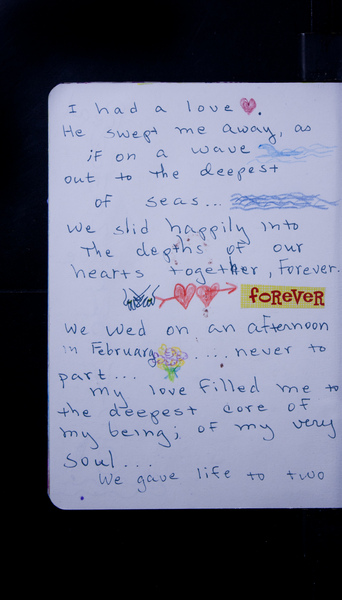 I had a love
He swept me away, as
if on a wave
out to the deepest
of seas...
We slid happily into
The depths of our
hearts together, Forever.
foREVER
We wed on an afternoon
in February .... never to
part...
My love filled me to
the deepest core of
my being; of my very
soul...
We gave life to two